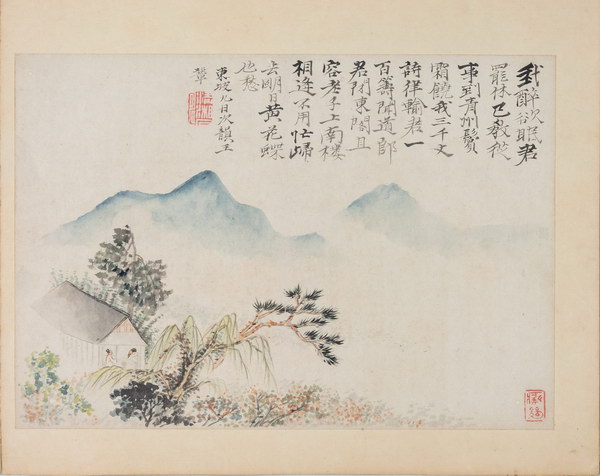 我醉欲眠君
罷休已教從
事到青州鬢
霜饒我三千丈
詩律輸君一
百籌聞道郎
君閉東閣且
容老子上南樓
相逢不用忙歸
去明日黃花蝶
也愁
東坡九日次韻王
鞏